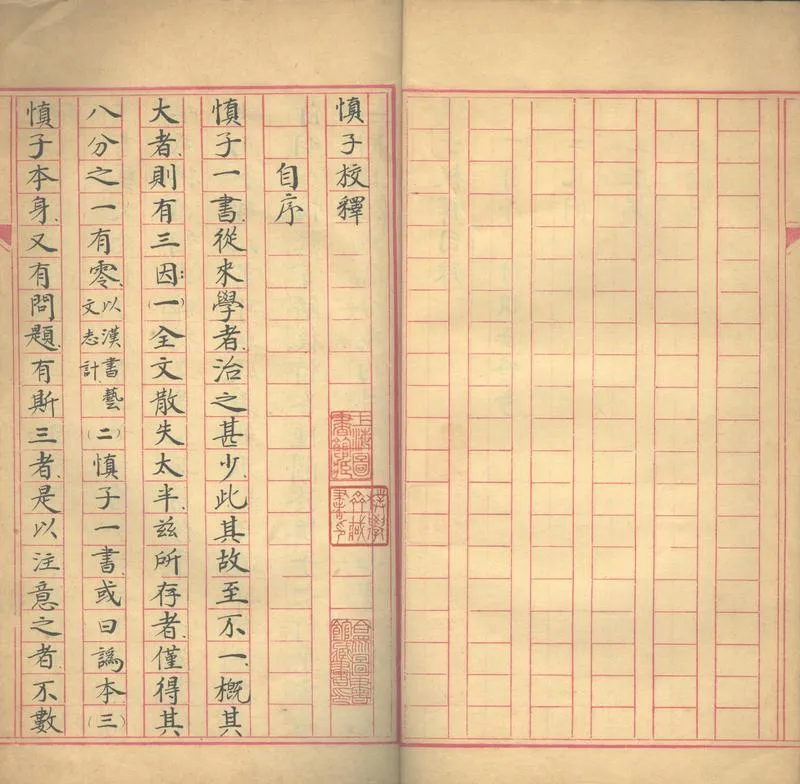 慎子校釋
自序
慎子一書、從來學者、治之甚少、此其故至不一、概其
大者、則有三因：(一)全文散失太半、茲所存者、僅得其
八分之一有零、以漢書藝文志計(二)慎子一書或曰譌本、(三)
慎子本身、又有問題、有斯三者、是以注意之者、不數
上海圖書館藏
合眾圖書館藏書印